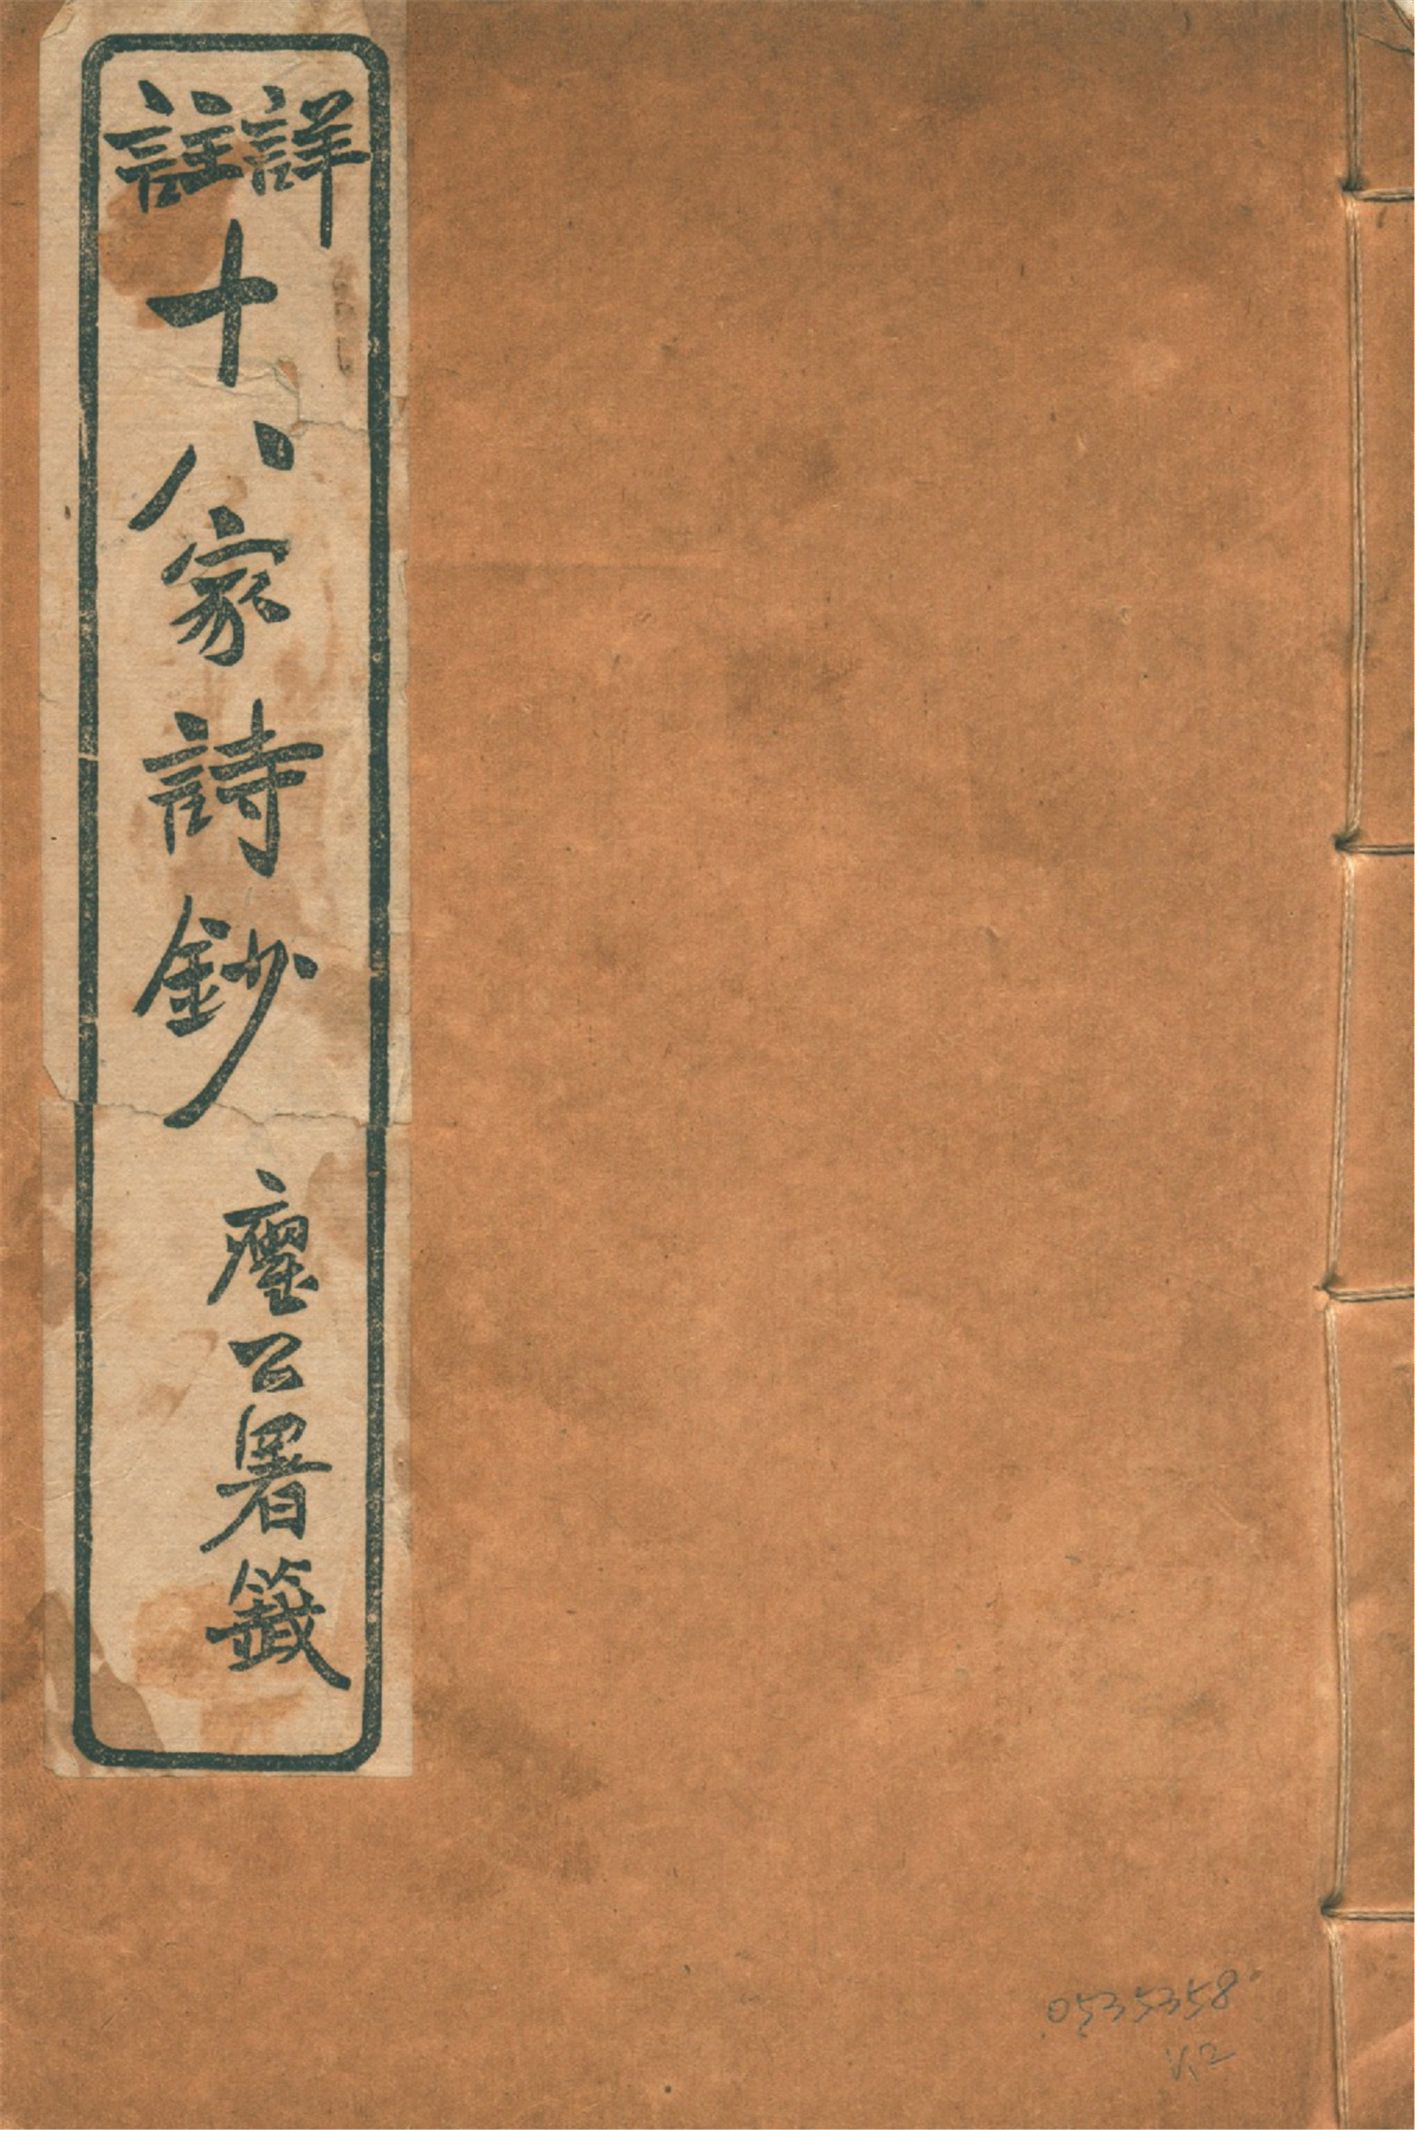 詳註
十八家詩鈔
癯公署籤
0535358
V.2